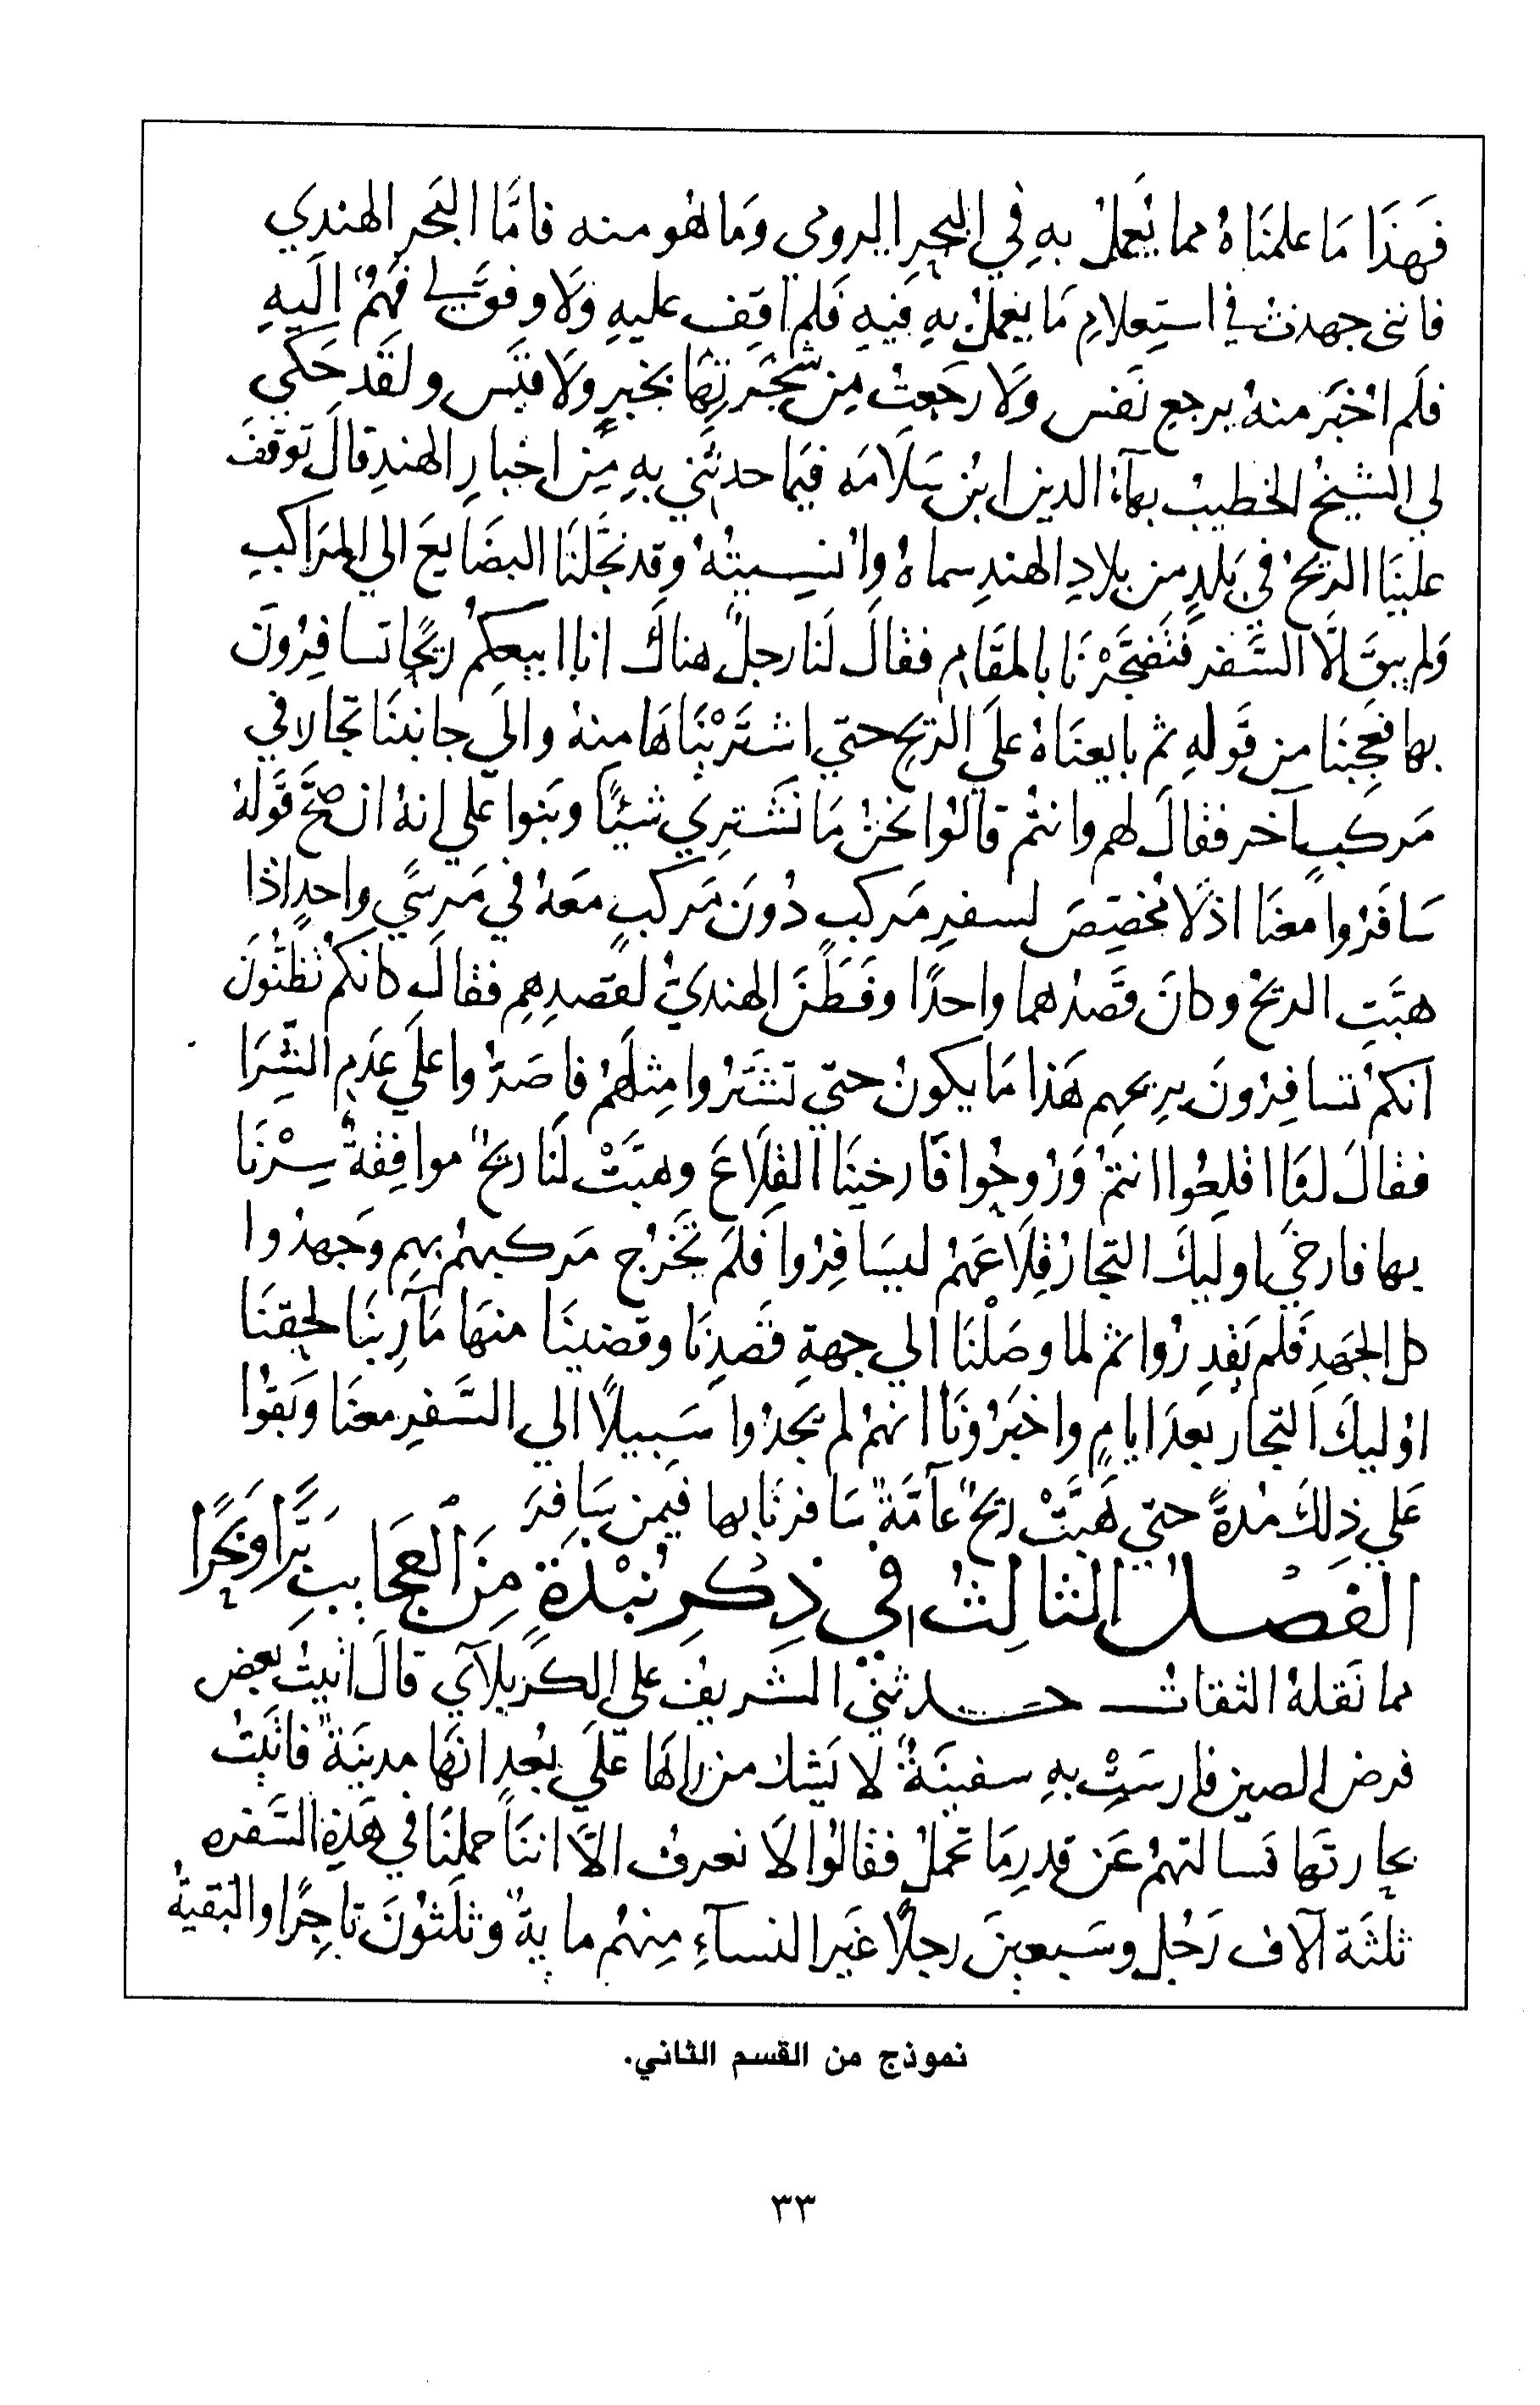 فَهَذَا مَا علمنَاهُ مما يُعملُ بهِ فِي البحرِ الرومي وَمَا هُو منه فامَّا البَحر الهندِي
فانني جهدتُ في استِعلامِ مَا يعملُ بهِ فيهِ فَلم اقِف عليهِ وَلَا وفقَ لي فَهمٌ اِلَيهِ
فلَم اخبَر منهُ برجع نَفس وَلَا رجَعتُ مِن شَجَرتِهَا بخبرٍ وَلَا قبَس ولقَد حَكَي
لي الشيخُ الخطيبُ بهآءُ الدين ابنُ سَلَامَه فيمَا حدثَني بهِ مِن اخبارِ الهندِ قالَ توقفَ
علينَا الريحُ في بَلدٍ من بلادِ الهندِ سماهُ وانسيتُهُ وقد نجَّلنَا البضَايعَ الي المرَاكبِ
وَلم يبقَ اِلَّا السَّفر فتَضجَّرْنَا بالمقَامِ فقالَ لَنا رجلٌ هناكَ انا ابيعكمُ ريحًا تسافِرُونَ
بها فعجِبنَا من قَولهِ ثم بايعنَاهُ علَي الريحِ حتي اشتَرَيْنَاهَا منهُ والَي جانبنَا تجارا في
مَركبٍ آخر فقالَ لهم وانتُم قالُوا نحنُ مَا نَشترِي شيًا وبَنوا علي انهُ ان صحَّ قَولهُ
سَافَرُوا معنَا اذ لَا مُخصِّصَ لسفرِ مَركبٍ دُونَ مَركبٍ معَهُ في مَرسًي واحدٍ اذا
هبَّتِ الريحُ وكانَ قَصدُهما واحدًا وفَطَنَ الهنديُّ لقصدِهِم فقالَ كانكمُ تظنُّونَ
انكمُ تسافِرُونَ برِيحهِم هَذا مَا يكونُ حتي تشتَرُوا مِثلَهُمْ فاصَرُّوا علَي عَدَمِ الشِّرَا
فقالَ لنَا اقلِعُوا انتمُ وَرُوحُوا فَارخينَا القِلَاعَ وهبَّتْ لَنا ريحٌ موافِقةٌ سِرْنَا
بها فارخَي اوليكَ التجارُ قِلَاعَهُم ليسَافِرُوا فَلَم تخَرُج مَركبهُم بهِم وَجهدُوا
كل الجَهدِ فَلم يَقدِرُوا ثم لما وصَلْنَا الي جهةِ قَصدِنَا وقضينَا منهَا مَآرِبنَا لحقنَا
اوُليكَ التجارُ بعدَ ايامٍ واخبَرُونَا انهُم لم يَجدُوا سَبيلًا الي السَّفرِ معنَا وبَقُوا
عَلي ذِلكَ مُدةً حتي هَبَّتْ ريحٌ عآمَّةٌ سَافرنَا بها فيمَن سَافِرَ
الفَصْلُ الثالثُ فِي ذِكرِ نُبْذَةٍ مِنَ العجَايبِ بَرًّا وَبَحرًا
مما نَقلهُ الثقاتُ حـــدثنَي الشريفُ علي الكَرْبلآي قالَ اتيتُ بعض
فرض الصين فارسَتْ بهِ سفينَةٌ لا يَشكُ من راهَا علَي بُعدٍ انهَا مدينَةٌ فاتَيتُ
بحارتَها فسالتهُم عَن قدرِ مَا تحَملُ فقالُوا لَا نعرفُ الَّا اننَا حملنَا في هَذِهِ السَّفره
ثلثَة آلاف رَجُلٍ وسَبعينَ رجلًا غَير النسآءِ مِنهُم مايةٌ وثلثونَ تاجِرًا والبَقيةُ
نموذج من القسم الثاني.
٣٣